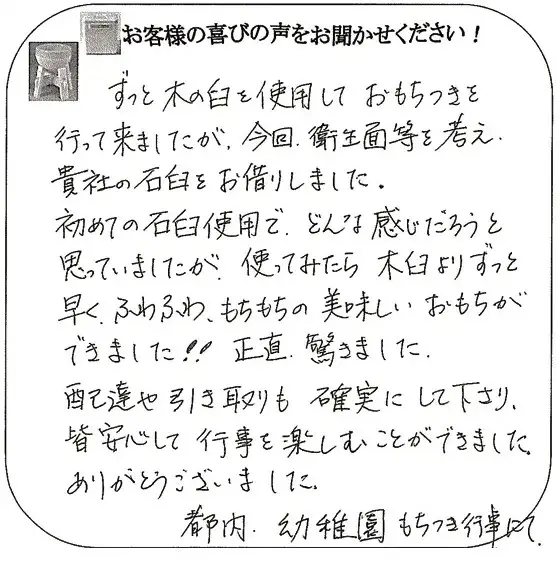 お客様の喜びの声をお聞かせください！
ずっと木の臼を使用しておもちつきを
行って来ましたが、今回、衛生面等を考え、
貴社の石臼をお借りしました。
初めての石臼使用で、どんな感じだろうと
思っていましたが、使ってみたら木臼よりずっと
早く、ふわふわ、もちもちの美味しいおもちが
できました!! 正直、驚きました。
配達や引き取りも確実にして下さり、
皆安心して行事を楽しむことができました。
ありがとうございました。
都内、幼稚園もちつき行事にて、